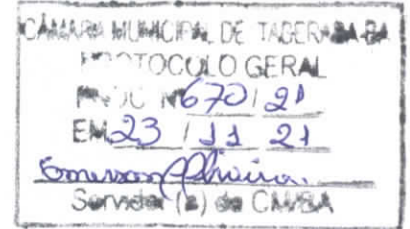 CÂMARA MUNICIPAL DE TAGERABA-BA
PROTOCOLO GERAL
PROC Nº 670/21
EM 23 / 11 21
Emerson Oliveira.
Servidor (a) da CM/BA